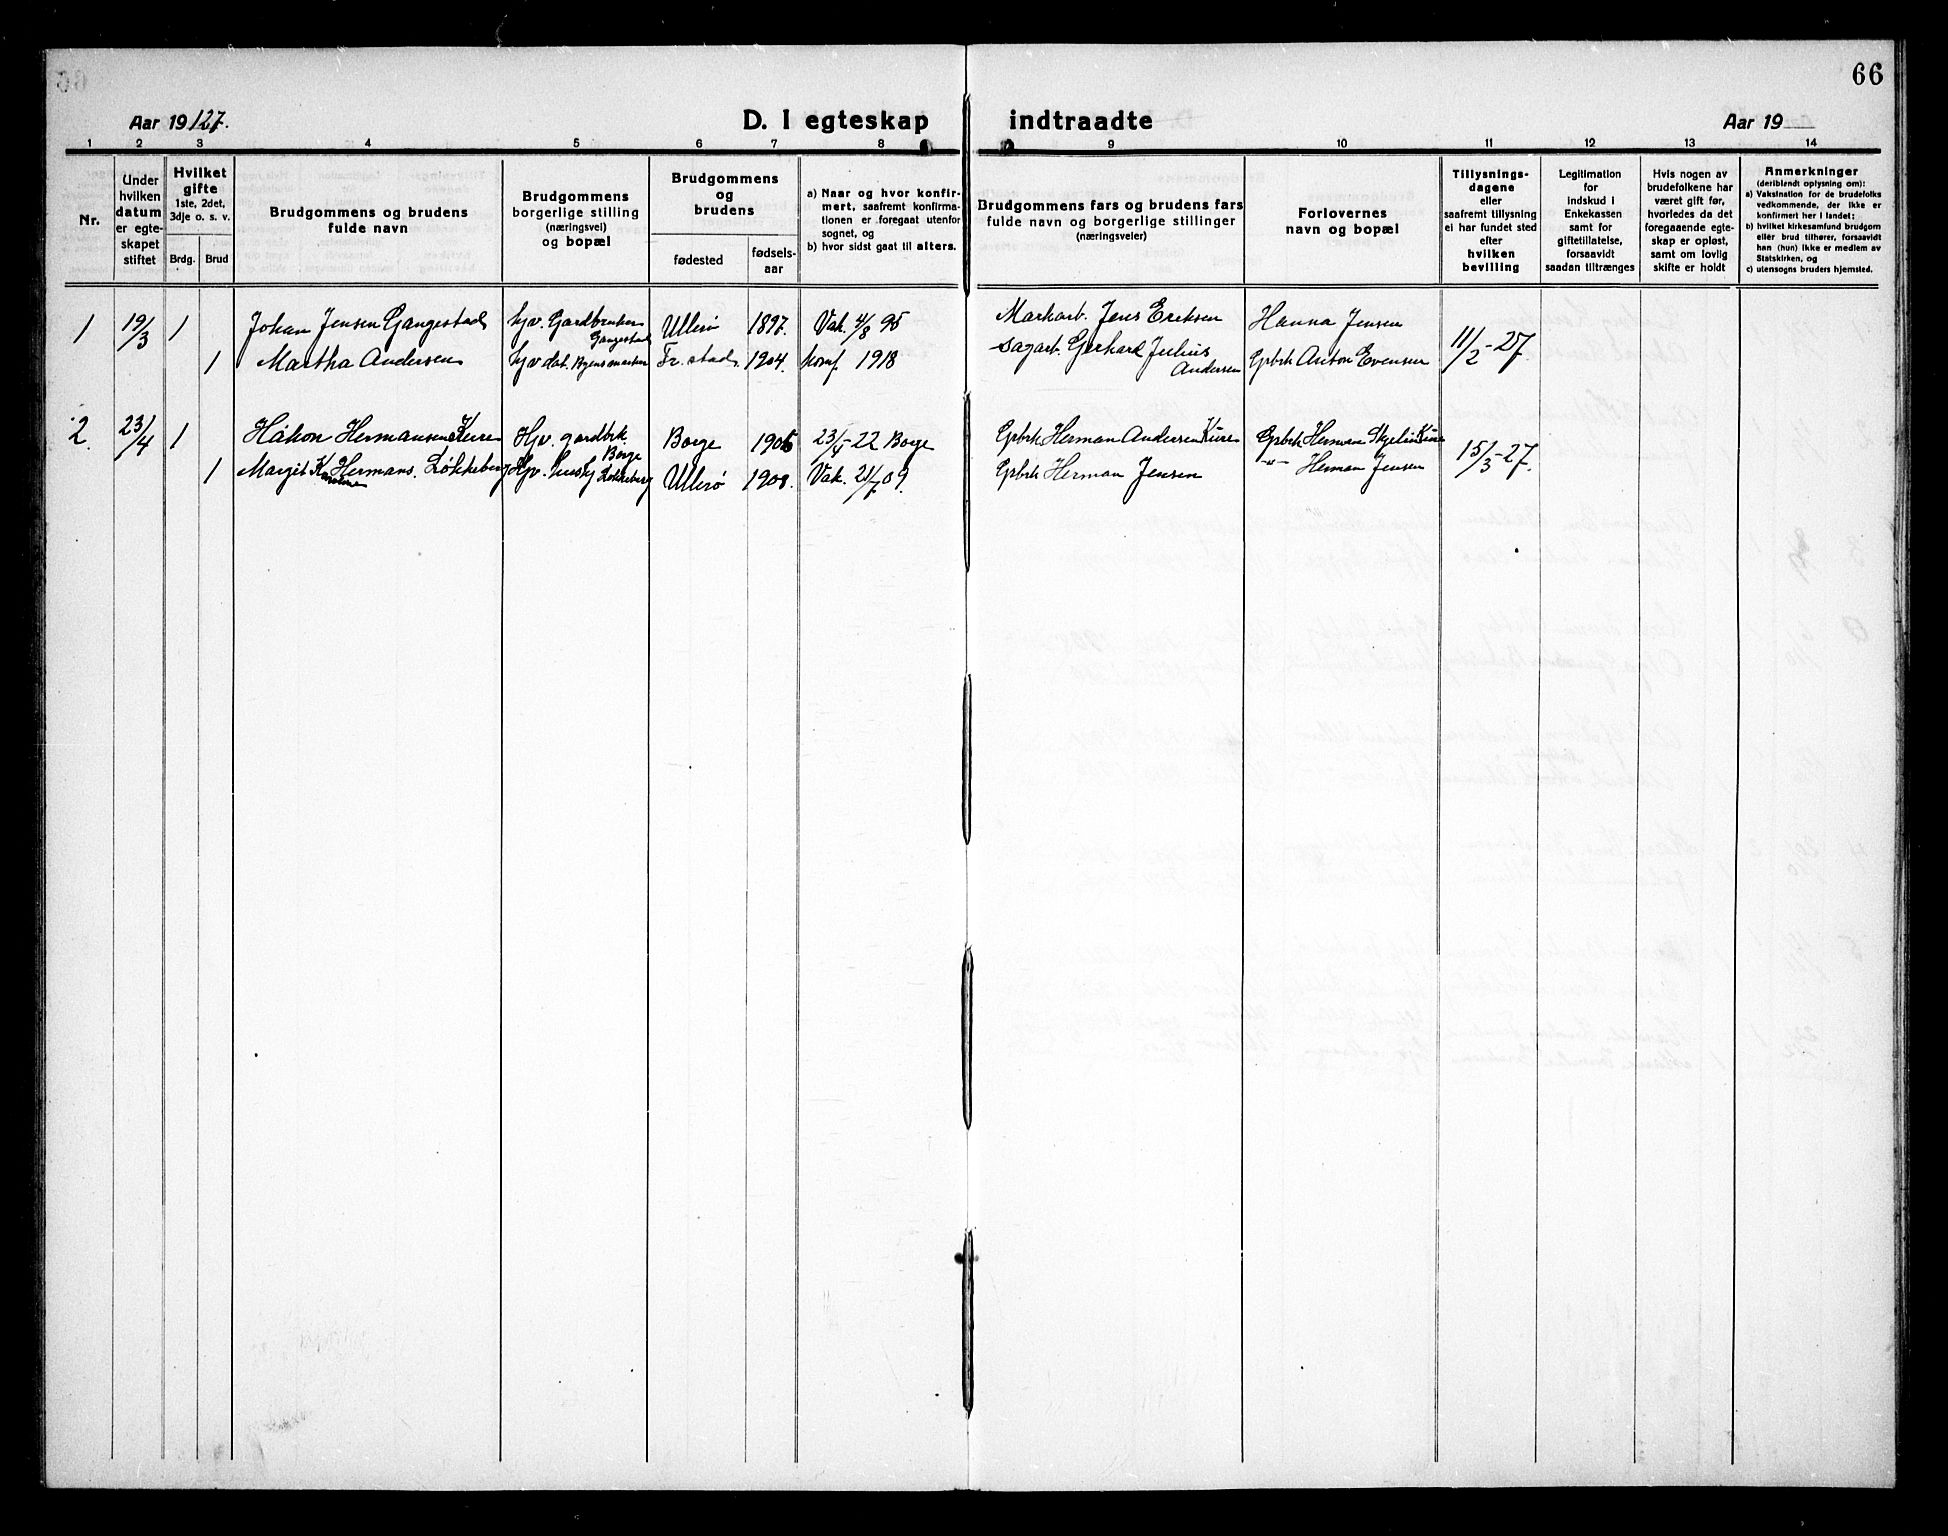 66
Aar 19127.
D. I egteskap indtraadte
Aar 19
1 2 3 4 5 6 7 8 9 10 11 12 13 14
Nr.
Under hvilken datum er egte-skapet stiftet
Hvilket gifte
1ste, 2det, 3dje o. s. v.
Brdg. Brud
Brudgommens og brudens fulde navn
Brudgommens borgerlige stilling (næringsvei) og bopæl
Brudgommens og brudens
fødested
fødsels-aar
a) Naar og hvor konfir-mert, saafremt konfirma-tionen er foregaat utenfor sognet, og
b) hvor sidst gaat til alters.
Brudgommens fars og brudens fars fulde navn og borgerlige stillinger (næringsveier)
Forlovernes navn og bopæl
Tillysnings-dagene eller saafremt tillysning ei har fundet sted efter hvilken bevilling
Legitimation for indskud i Enkekassen samt for giftetillatelse, forsaavidt saadan tiltrænges
Hvis nogen av brudefolkene har været gift før, hvorledes da det foregaaende egte-skap er opløst, samt om lovlig skifte er holdt
Anmerkninger
(deriblandt oplysning om):
a) Vaksination for de brudefolks vedkommende, der ikke er konfirmert her i landet;
b) hvilket kirkesamfund brudgom eller brud tilhører, forsaavidt han (hun) ikke er medlem av Statskirken, og
c) utensogns bruders hjemsted.
1 19/3 1 Johan Jensen Gangestad hjv. Gardbruker Gangestad Ullerø 1897. Vak. 4/8 98 Markarb. Jens Eriksen Hanna Jensen 11/2-27.
1 Martha Andersen hjv dat. Fr.stad. 1904. konf 1918 Sagarb. Gerhard Julius Andersen Gpbrk Anton Evensen
2. 23/4 1 Håkon Hermansen Kure Hjv. gardbrk. Borge Borge 1905 23/4-22 Borge Gpbrk Herman Andersen Kure Gpbrk Herman Skjelin Kure 15/3-27.
1 Margit Karoline Hermans. Løkkeberg Hjv. Løkkeberg Ullerø 1908. Vak. 21/7 09. Gpbrk Herman Jensen -"- Herman Jensen